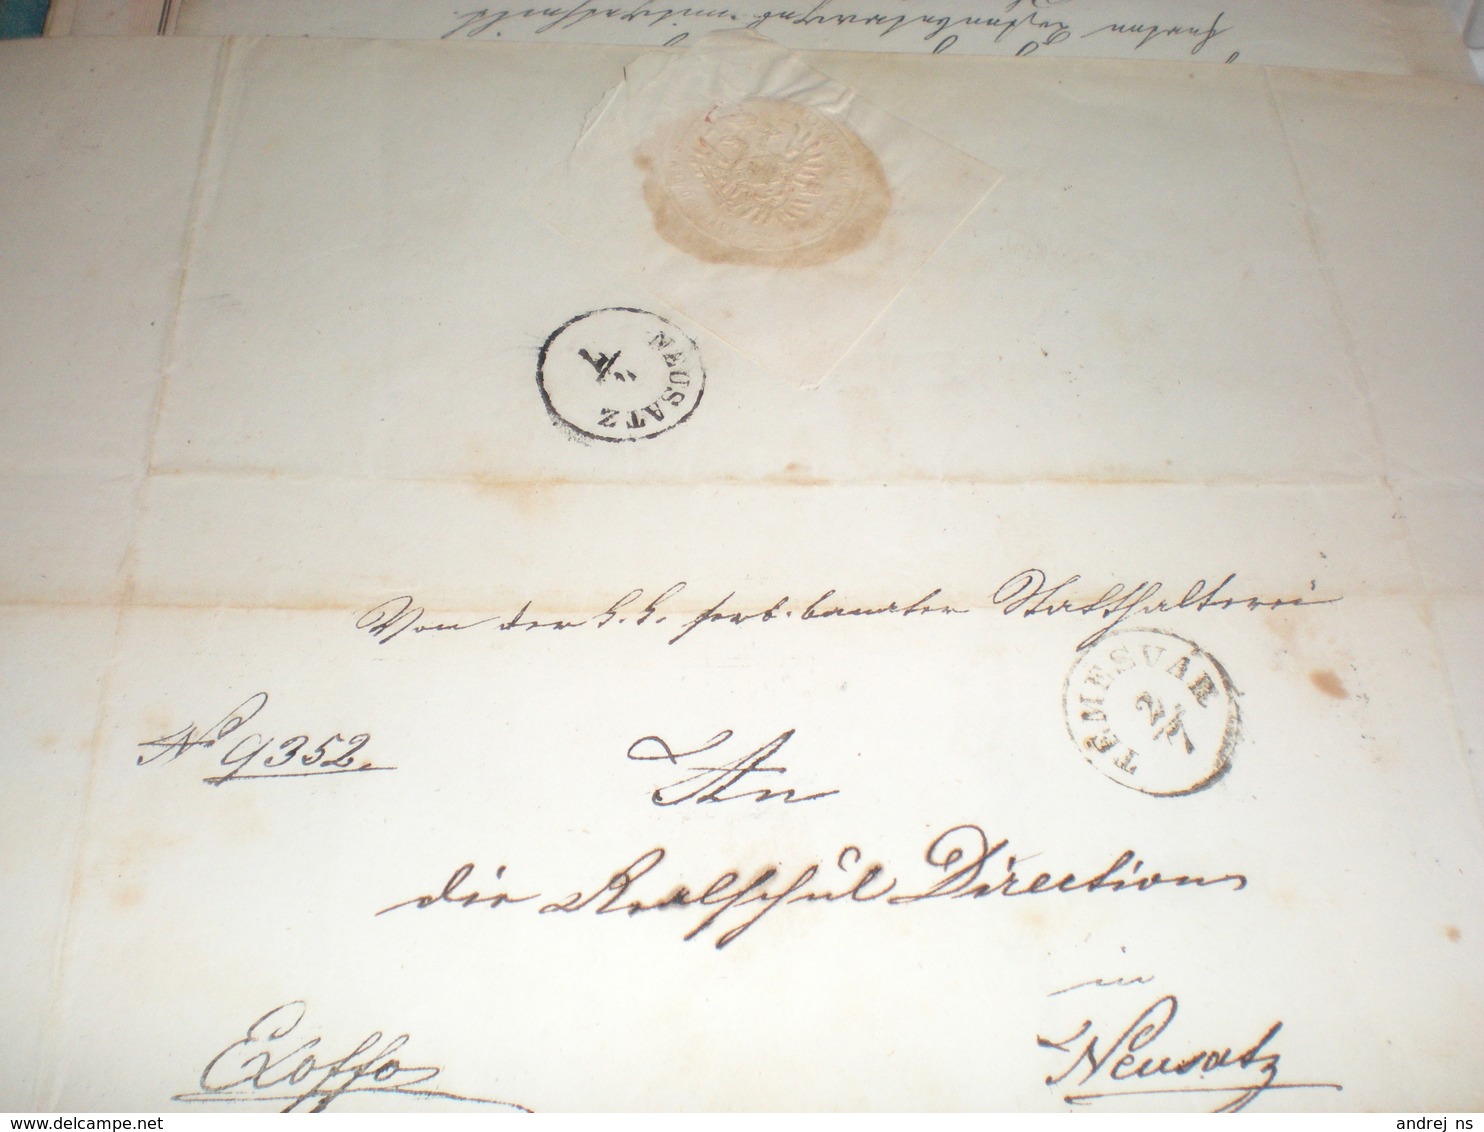 NEUSATZ
Von der k.k. serb. banater Statthalterei
TEMESVÁR
2/7
No 9352.
An
die Realschul Direction
in
Exoffo
Neusatz
www.delcampe.net
andrej_ns